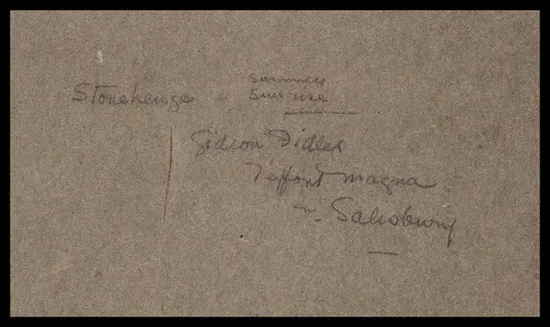 Summer
Stonehenge - Sun-rise
Gideon Fidler
Teffont Magna
Salisbury